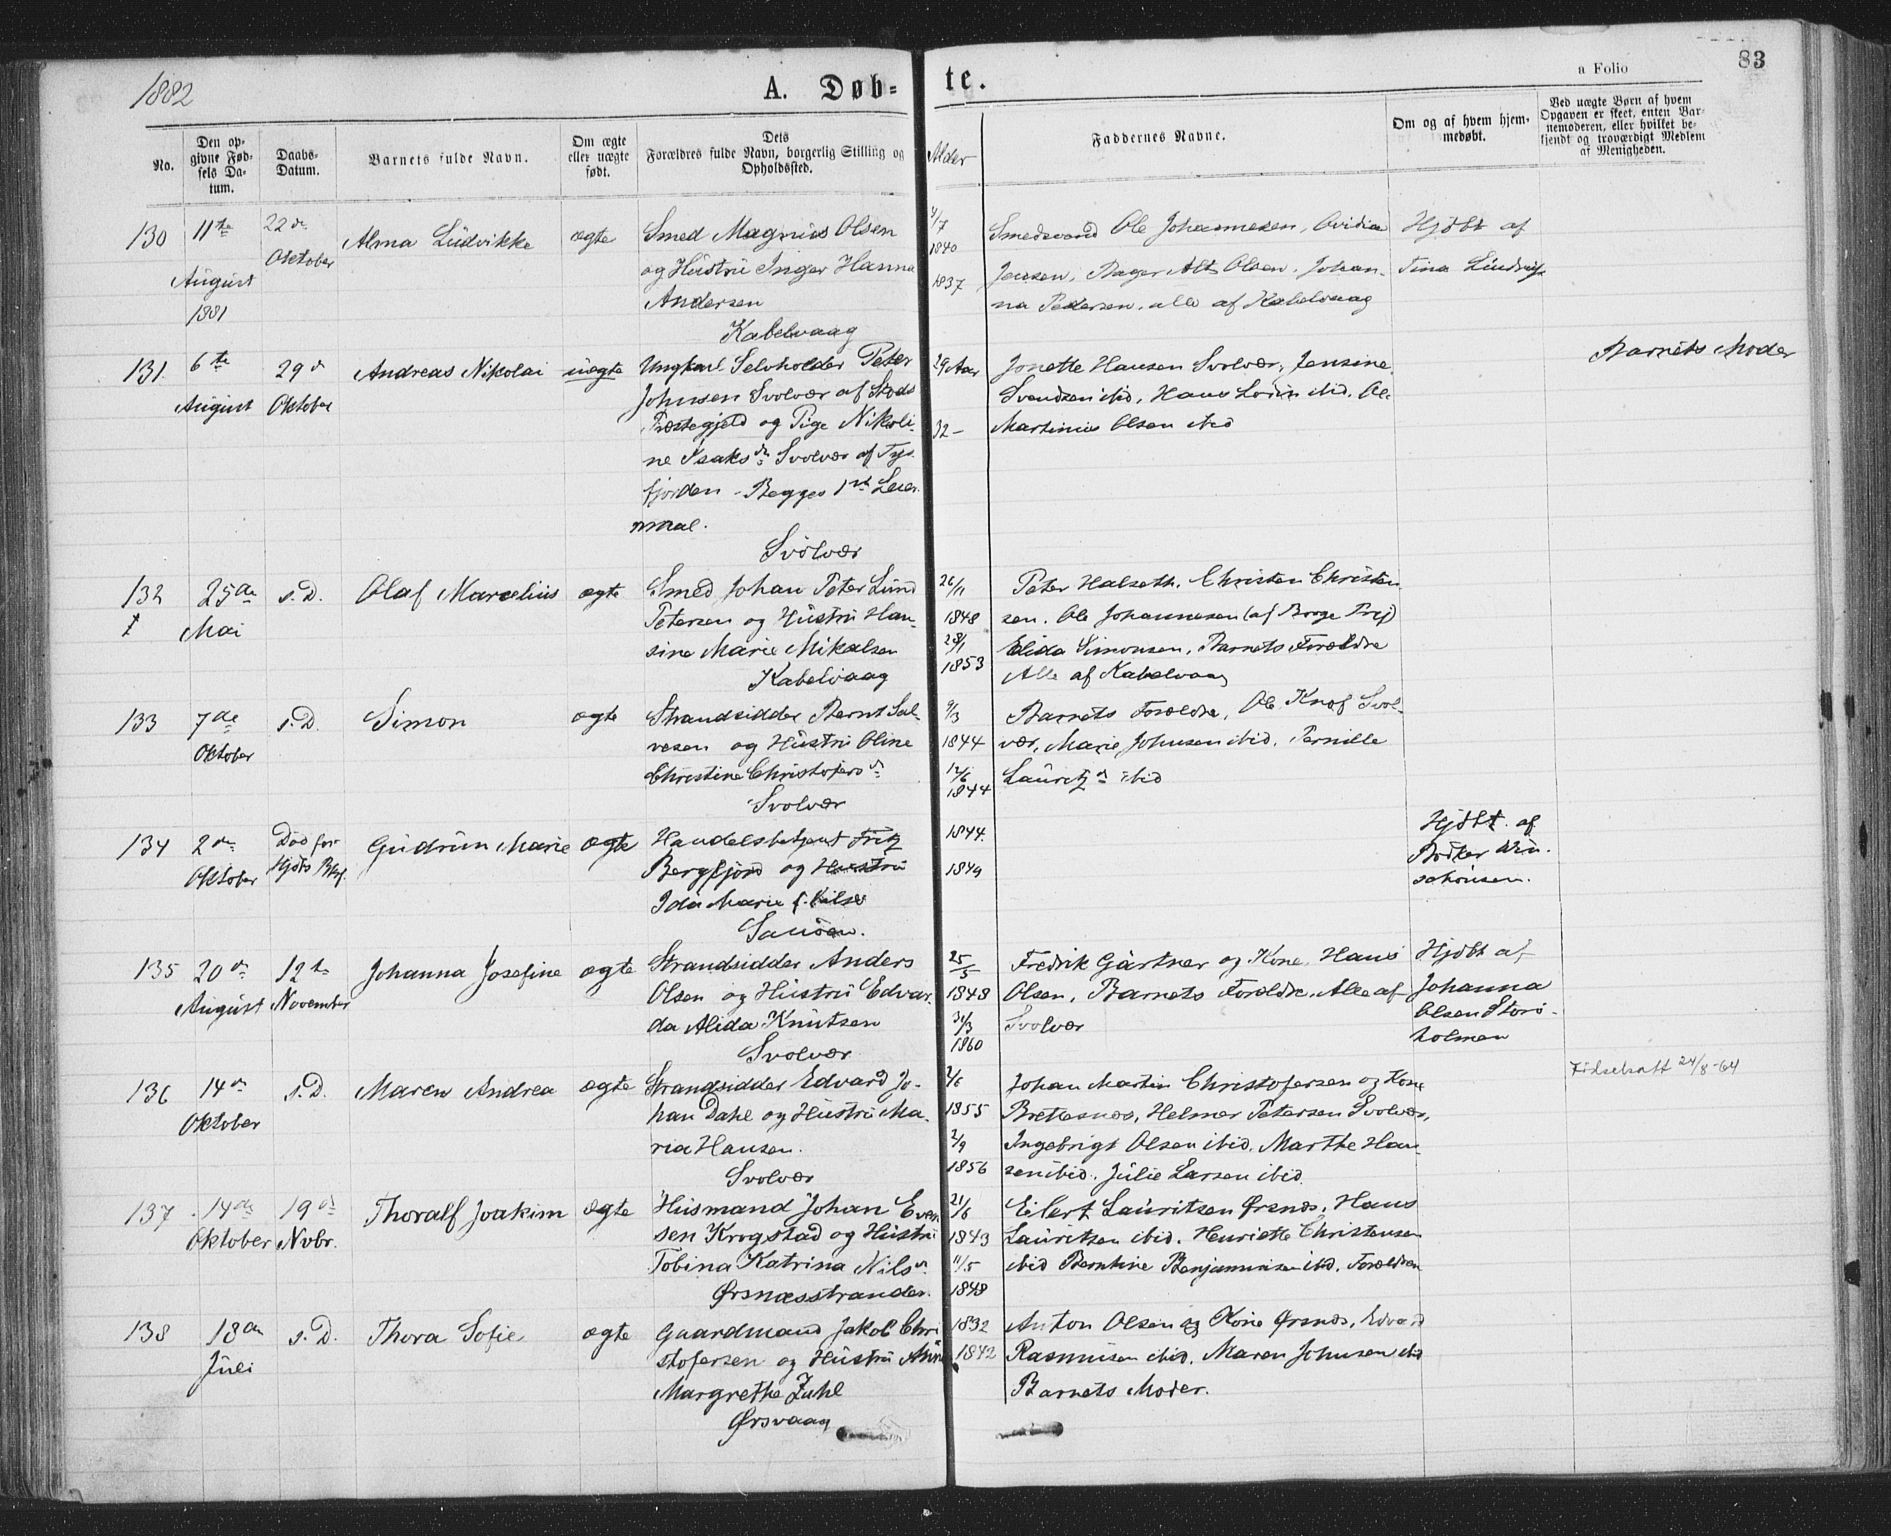 1882
A. Døb-
te.
a Folio
83
No.
Den op-
givne Fød-
sels Da-
tum.
Daabs-
Datum.
Barnets fulde Navn.
Om ægte
eller uægte
født.
Dets
Forældres fulde Navn, borgerlig Stilling og
Opholdssted.
Alder
Faddernes Navne.
Om og af hvem hjem-
medøbt.
Ved uægte Børn af hvem
Opgaven er skeet, enten Bar-
nemoderen, eller hvilket be-
kjendt og troværdigt Medlem
af Menigheden.
130
11te
August
1881
22de
Oktober
Alma Ludvikke
ægte
Smed Magnus Olsen
og Hustru Inger Hanna
Andersen
Kabelvaag
4/7
1840
1837
Smedsvend Ole Johannesen, Ovidia
Jensen, Bager Alt Olsen, Johan-
na Pedersen, alle af Kabelvaag
Hjdbt af
Tina
131.
6te
August
29d
Oktober
Andreas Nikolai
uægte
Ungkarl Selvholder Peter
Johnsen Svolvær af Stods
Præstegjeld og Pige Nikoli-
ne Isaksdr Svolvær af Tys-
fjorden - Begges 1ste Leier-
maal.
Svolvær
29 Aar
32 -
Jonette Hansen Svolvær, Jensine
Svendsen ibid, Hans ibid, Ole
Martinus Olsen ibid
Barnets Moder
132
†
25de
Mai
s.D.
Olaf Marcelius
ægte
Smed Johan Peter Lund
Petersen og Hustru Han-
sine Marie Mikalsen
Kabelvaag
26/11
1848
28/1
1853
Peter Halseth, Christen Christen-
sen, Ole Johannesen (af Borge Prgj)
Elida Simonsen, Barnets Forældre
Alle af Kabelvaag
133
7de
Oktober
s.D.
Simon
ægte
Strandsidder Bernt Sal-
vesen og Hustru Oline
Christine Christofersdr
Svolvær
9/3
1844
12/6
1844
Barnets Forældre, Ole Knof Svol-
vær, Marie Johnsen ibid, Pernille
Lauritzdr ibid
134
2den
Oktober
Død før
Hjdbs Bkj.
Gudrun Marie
ægte
Handelsbetjent Fritz
Bergfjord og Hustru
Ida Marie f.
1844.
1849
Hjdbt. af
Bødker
135
20de
August
12te
November
Johanna Josefine
ægte
Strandsidder Anders
Olsen og Hustru Edvar-
da Alida Knutsen
Svolvær
25/5
1848
31/3
1860
Fredrik Gärtner og Kone, Hans
Olsen, Barnets Forældre, Alle af
Svolvær
Hjdbt af
Johanna
Olsen Storø-
holmen
136
14de
Oktober
s.D.
Maren Andrea
ægte
Strandsidder Edvard Jo-
han Dahl og Hustru Ma-
ria Hansen.
Svolvær
2/6
1855
2/9
1856
Johan Martin Christofersen og Kone
Brettesnæs, Helmer Petersen Svolvær,
Ingebrigt Olsen ibid, Marthe Han-
sen ibid, Julie Larsen ibid.
Fødselsatt 24/8-64
137
14de
Oktober
19de
Nvbr.
Thoralf Joakim
ægte
Husmand Johan Even-
sen Krogstad og Hustru
Tobina Katrina Nilsdr
Ørsnæsstranden.
21/6
1843
11/5
1848
Eilert Lauritsen Ørsnæs, Hans
Lauritsen ibid, Henriette Christensen
ibid Berntine Benjaminsen ibid. Forældren
138
18de
Juli
s.D.
Thora Sofie
ægte
Gaardmand Jakob Chri-
stofersen og Hustru Anne
Margrethe Juhl
Ørsvaag
1832
1842
Anton Olsen og Kone Ørsnæs, Edvard
Rasmusen ibid, Maren Johnsen ibid
Barnets Moder.